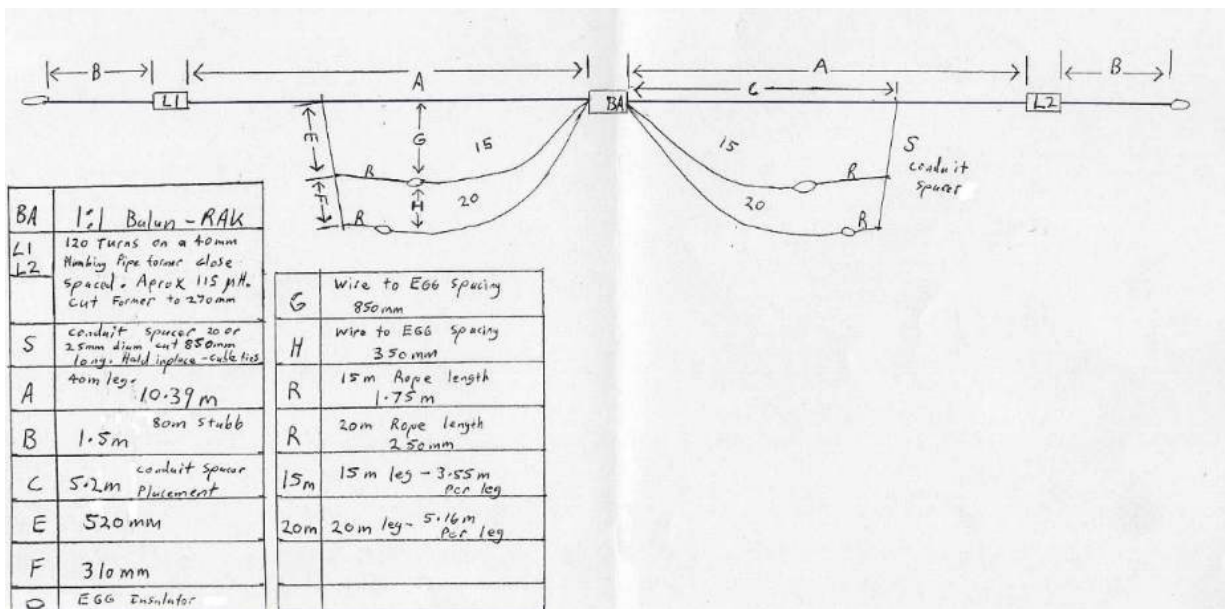 B
A
A
B
L1
BA
C
L2
E
G
15
15
S
conduit
spacer
R
R
F
H
20
20
R
R
BA
1:1 Balun - RAK
L1
L2
120 Turns on a 40mm
Plumbing Pipe former close
spaced. Aprox 115 µH.
Cut Former to 270mm
S
conduit spacer 20 or
25mm diam cut 850mm
long. Hold inplace - cable ties
A
40m leg.
10.39 m
B
80m Stubb
1.5m
C
5.2m conduit Spacer
Placement
E
520mm
F
310mm
EGG Insulator
G
Wire to EGG Spacing
850mm
H
Wire to EGG Spacing
350mm
R
15m Rope length
1.75m
R
20m Rope length
250mm
15m
15m leg - 3.55m
Per leg
20m
20m leg - 5.16m
Per leg